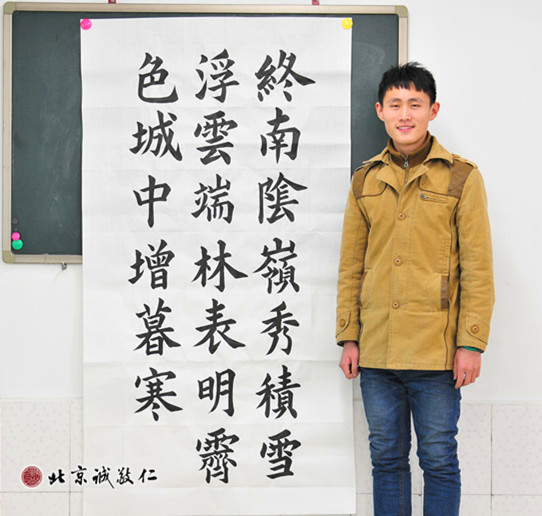 終南陰嶺秀積雪
浮雲端林表明霽
色城中增暮寒
北京诚敬仁